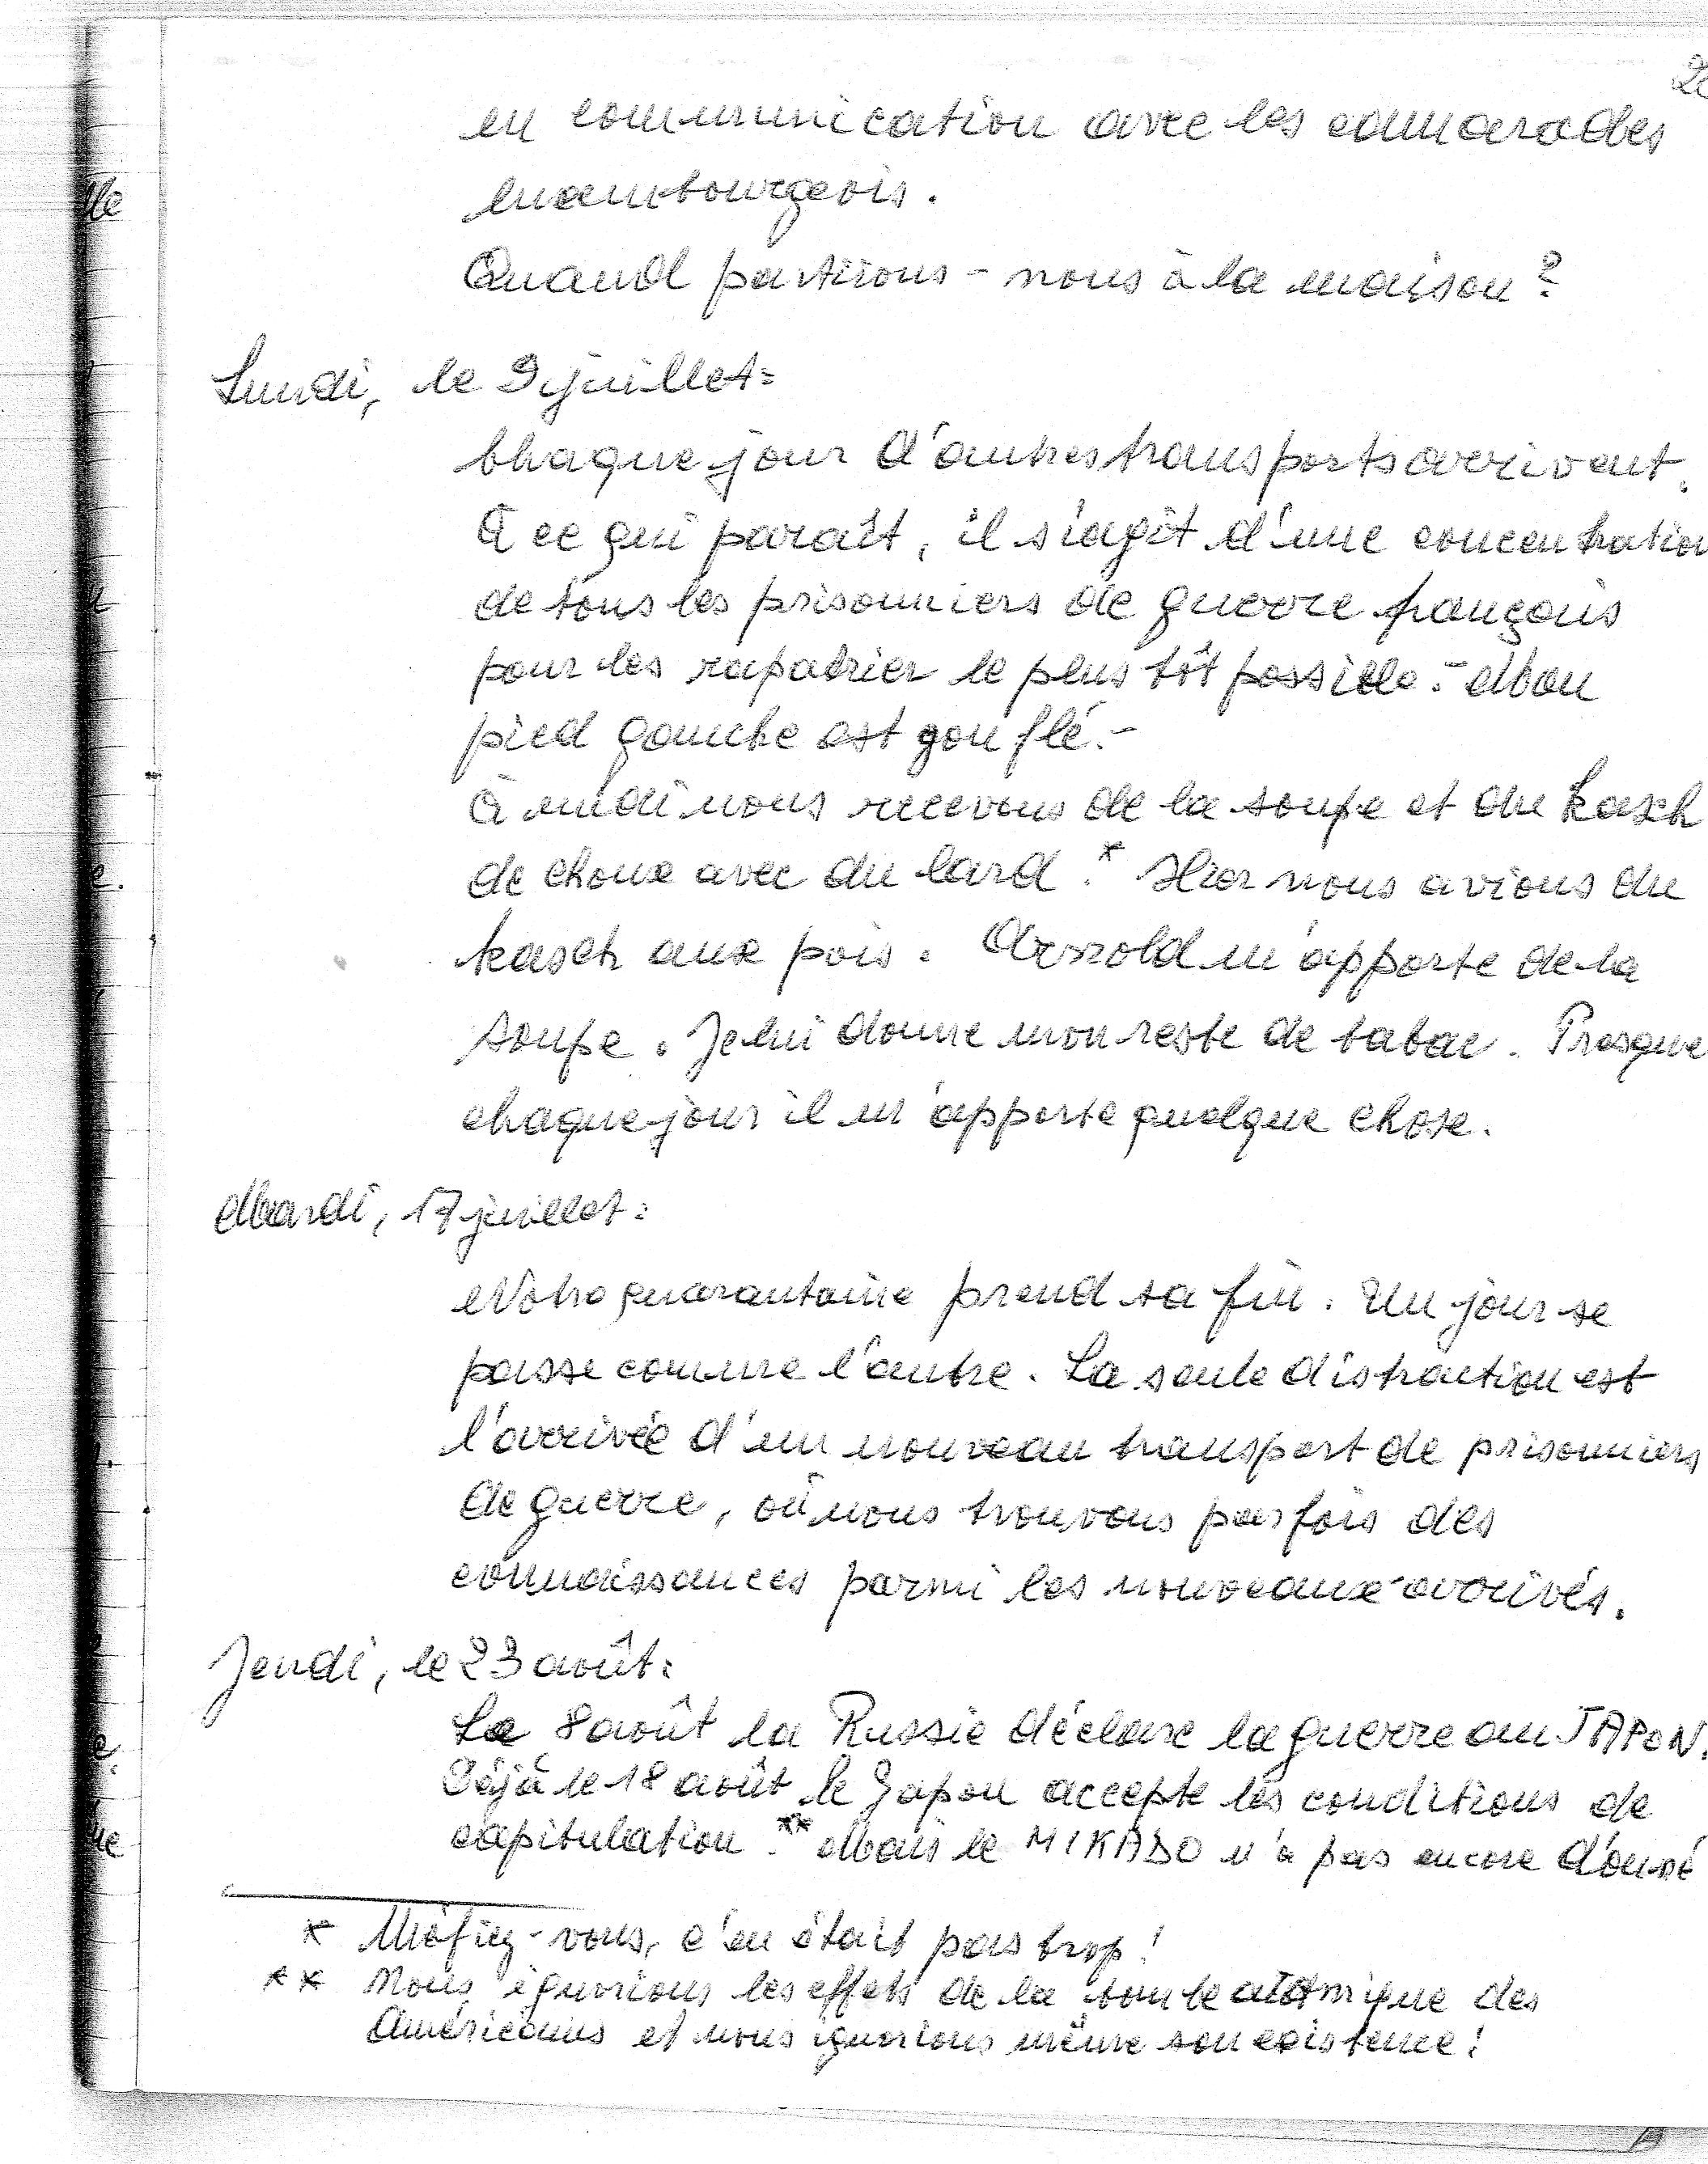 en communication avec les camarades
luxembourgeois.
Quand partirons-nous à la maison ?
Lundi, le 9 juillet:
Chaque jour d'autres transports arrivent.
À ce qui paraît, il s'agit d'une concentration
de tous les prisonniers de guerre français
pour les rapatrier le plus tôt possible.- Mon
pied gauche est gonflé.-
À midi nous recevons de la soupe et du Kasch
de choux avec du lard.* Hier nous avions du
kasch aux pois. Arnold m'apporte de la
soupe. Je lui donne mon reste de tabac. Presque
chaque jour il m'apporte quelque chose.
Mardi, 17 juillet:
Notre quarantaine prend sa fin. Un jour se
passe comme l'autre. La seule distraction est
l'arrivée d'un nouveau transport de prisonniers
de guerre, où nous trouvons parfois des
connaissances parmi les nouveaux-arrivés.
Jeudi, le 23 août:
Le 8 août la Russie déclare la guerre au JAPON.
Déjà le 18 août le Japon accepte les conditions de
capitulation.** Mais le MIKADO n'a pas encore donné
* Méfiez-vous, c'en était pas trop!
** Nous ignorions les effets de la bombe atomique des
Américains et nous ignorions même son existence!